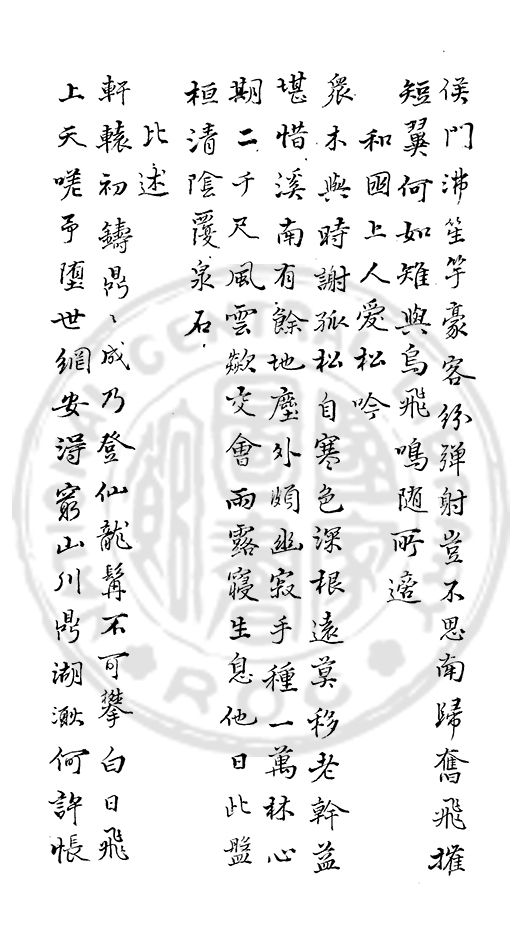 侯門沸笙竽豪客紛彈射豈不思南歸奮飛摧
短翼何如雉與烏飛鳴隨所適
和國上人愛松吟
衆木與時謝孤松自寒色深根遠莫移老幹益
堪惜溪南有餘地塵外頗幽寂手種一萬株心
期二千尺風雲歘交會雨露寖生息他日此盤
桓清陰覆泉石
比述
軒轅初鑄鼎鼎成乃登仙龍髯不可攀白日飛
上天嗟予墮世網安得窮山川鼎湖渺何許悵